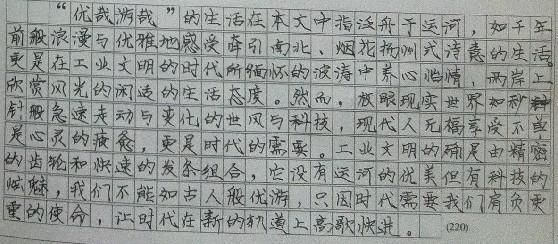 “优哉游哉”的生活在本文中指泛舟于运河，如千年
前般浪漫与优雅地感受牵引南北、烟花扬州式诗意的生活。
更是在工业文明的时代所缅怀的波涛中养心怡情、两岸上
欣赏风光的闲适的生活态度。然而，放眼现实世界如秒
针般急速走动与变化的世风与科技，现代人无福享受不单
是心灵的疲惫，更是时代的需要。工业文明的确是由精密
的齿轮和快速的发条组合，它没有运河的优美但有科技的
炫魅，我们不能如古人般优游，只因时代需要我们肩负更
重的使命，让时代在新的轨道上高歌快进。
(220)